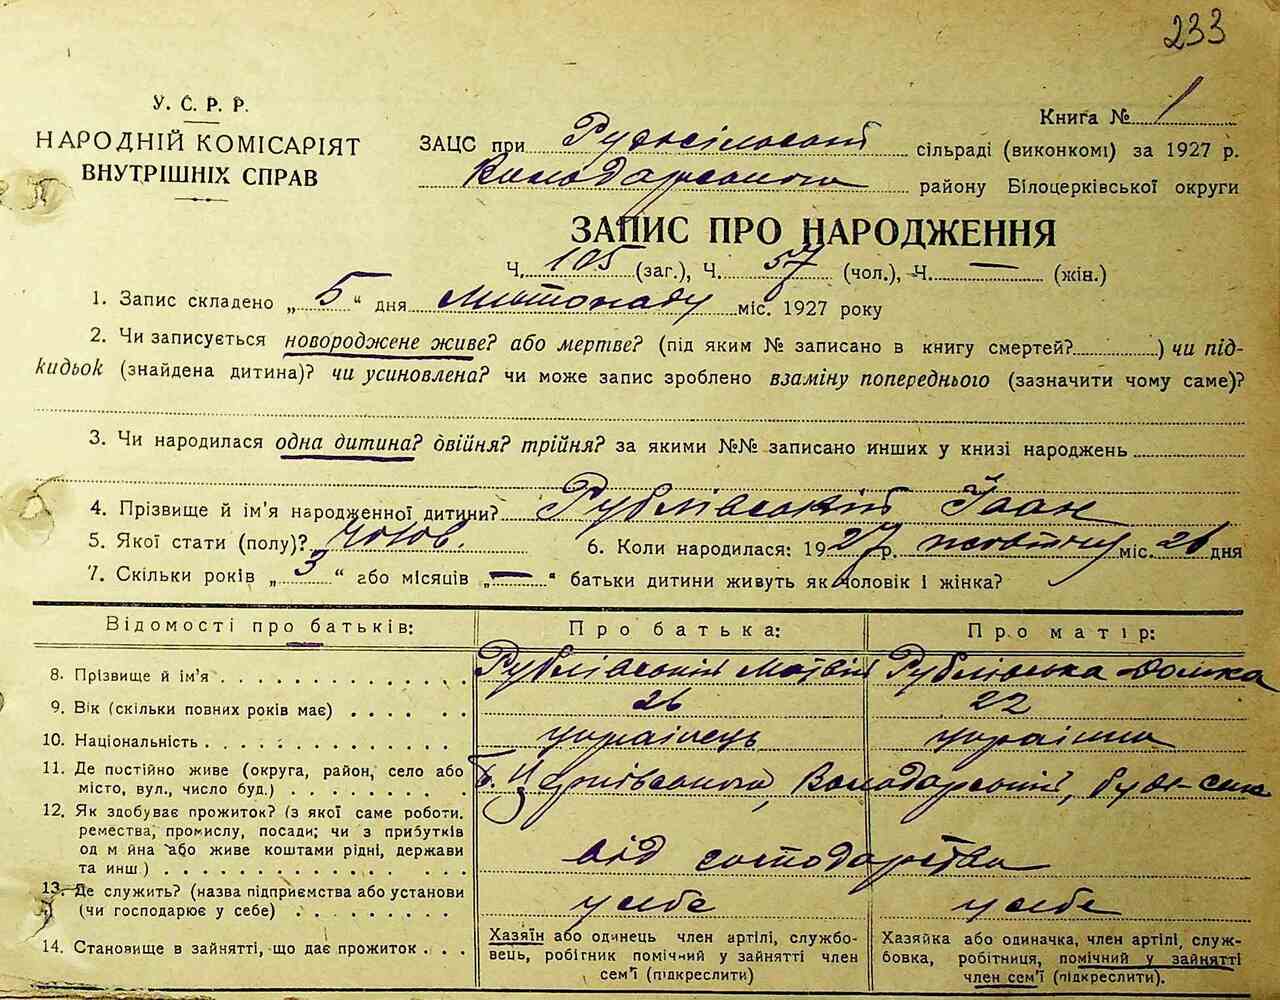 233
У. С. Р. Р.
НАРОДНІЙ КОМІСАРІЯТ
ВНУТРІШНІХ СПРАВ
Книга № 1
ЗАЦС при сільраді (виконкомі) за 1927 р.
Володарського району Білоцерківської округи
ЗАПИС ПРО НАРОДЖЕННЯ
Ч. 105 (заг.), Ч. 57 (чол.), Ч. — (жін.)
1. Запис складено „ 5 “ дня листопаду міс. 1927 року
2. Чи записується новороджене живе? або мертве? (під яким № записано в книгу смертей?) чи під-
кидьок (знайдена дитина)? чи усиновлена? чи може запис зроблено взаміну попереднього (зазначити чому саме)?
3. Чи народилася одна дитина? двійня? трійня? за якими №№ записано инших у книзі народжень
4. Прізвище й ім'я народженної дитини? Рублівський Іван
5. Якої стати (полу)? чолов. 6. Коли народилася: 1927 р. жовтня міс. 26 дня
7. Скільки років „ 3 “ або місяців „ — “ батьки дитини живуть як чоловік і жінка?
Відомості про батьків: Про батька: Про матір:
8. Прізвище й ім'я . . . Рублівський Матвій Рублівська Домка
9. Вік (скільки повних років має) . . . 26 22
10. Національність . . . українець українка
11. Де постійно живе (округа, район, село або
місто, вул., число буд.) . . . Б. Церківського, Володарський, Рудє-село
12. Як здобуває прожиток? (з якої саме роботи,
ремества, промислу, посади; чи з прибутків
од м йна або живе коштами рідні, держави
та инш) . . . від господарства
13. Де служить? (назва підприємства або установи
(чи господарює у себе) . . . у себе у себе
14. Становище в зайнятті, що дає прожиток . . .
Хазяїн або одинець член артілі, службо-
вець, робігник помічний у зайнятті член
сем'ї (підкреслити)
Хазяйка або одиначка, член артілі, служ-
бовка, робітниця, помічний у зайнятті
член сем'ї (підкреслити).